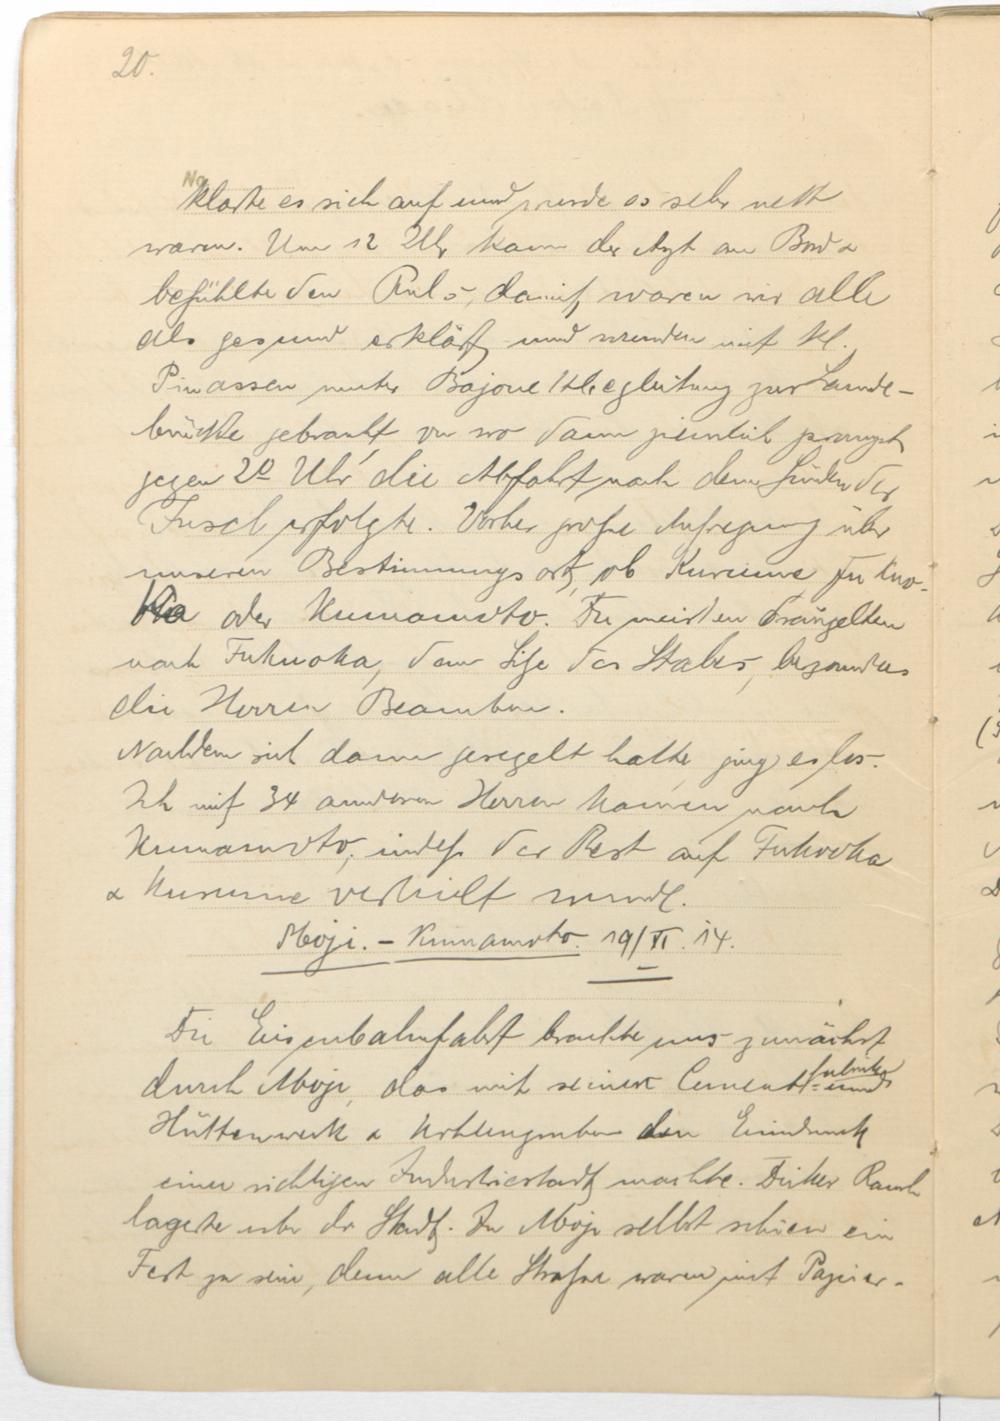 20.
klarte es sich auf und wurde es sehr nett
warm. Um 12 Uhr kam der Arzt an Bord &
befühlte den Puls, damit waren wir alle
als gesund erklärt und wurden mit kl.
Pinassen unter Bajonettbegleitung zur Lande-
brücke gebracht von wo dann ziemlich prompt
gegen 2º Uhr die Abfahrt nach dem Süden der
Insel erfolgte. Vorher große Aufregung über
unseren Bestimmungsort, ob Kurume, Fukuo-
ka oder Kumamoto. Die meisten drängelten
nach Fukuoka, dem Sitze des Stabes, besonders
die Herren Beamten.
Nachdem sich dann geregelt hatte ging es los.
Ich mit 34 anderen Herren kamen nach
Kumamoto, indeß der Rest auf Fukuoka
& Kurume verteilt wurde.
Moji. – Kumamoto. 19/XI. 14.
Die Eisenbahnfahrt brachte uns zunächst
durch Moji, das mit seinen Cementfabriken und
Hüttenwerk & Kohlengruben den Eindruck
einer richtigen Industriestadt machte. Dicker Rauch
lagerte über der Stadt. In Moji selbst schien ein
Fest zu sein, denn alle Straßen waren mit Papier-